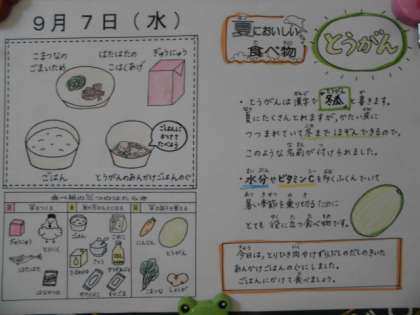 9月 7日(水)
こまつなの
ごまいため
はたはたの
こはしあげ
ぎゅうにゅう
ごはんに
かけて
たべよう
ごはん
とうがんのあんかけごはんのぐ
夏においしい
食べ物
とうがん
・とうがんは漢字で 冬瓜 と書きます。
夏にたくさんとれますが、かたい皮に
つつまれていて冬までほぞんできるので、
このような名前が付けられました。
・水分やビタミンCを多くふくんでいて
暑い季節を乗りきるために
とても役に立つ食べ物です。
今日は、とりひき肉やけずりぶしのだしのきいた
あんかけごはんのぐにしました。
ごはんにかけて食べましょう。
ぎゅうにゅう
とりにく
はたはた
ごはん
さとう
ごま
にんじん
とうがん
こまつな
しょうが